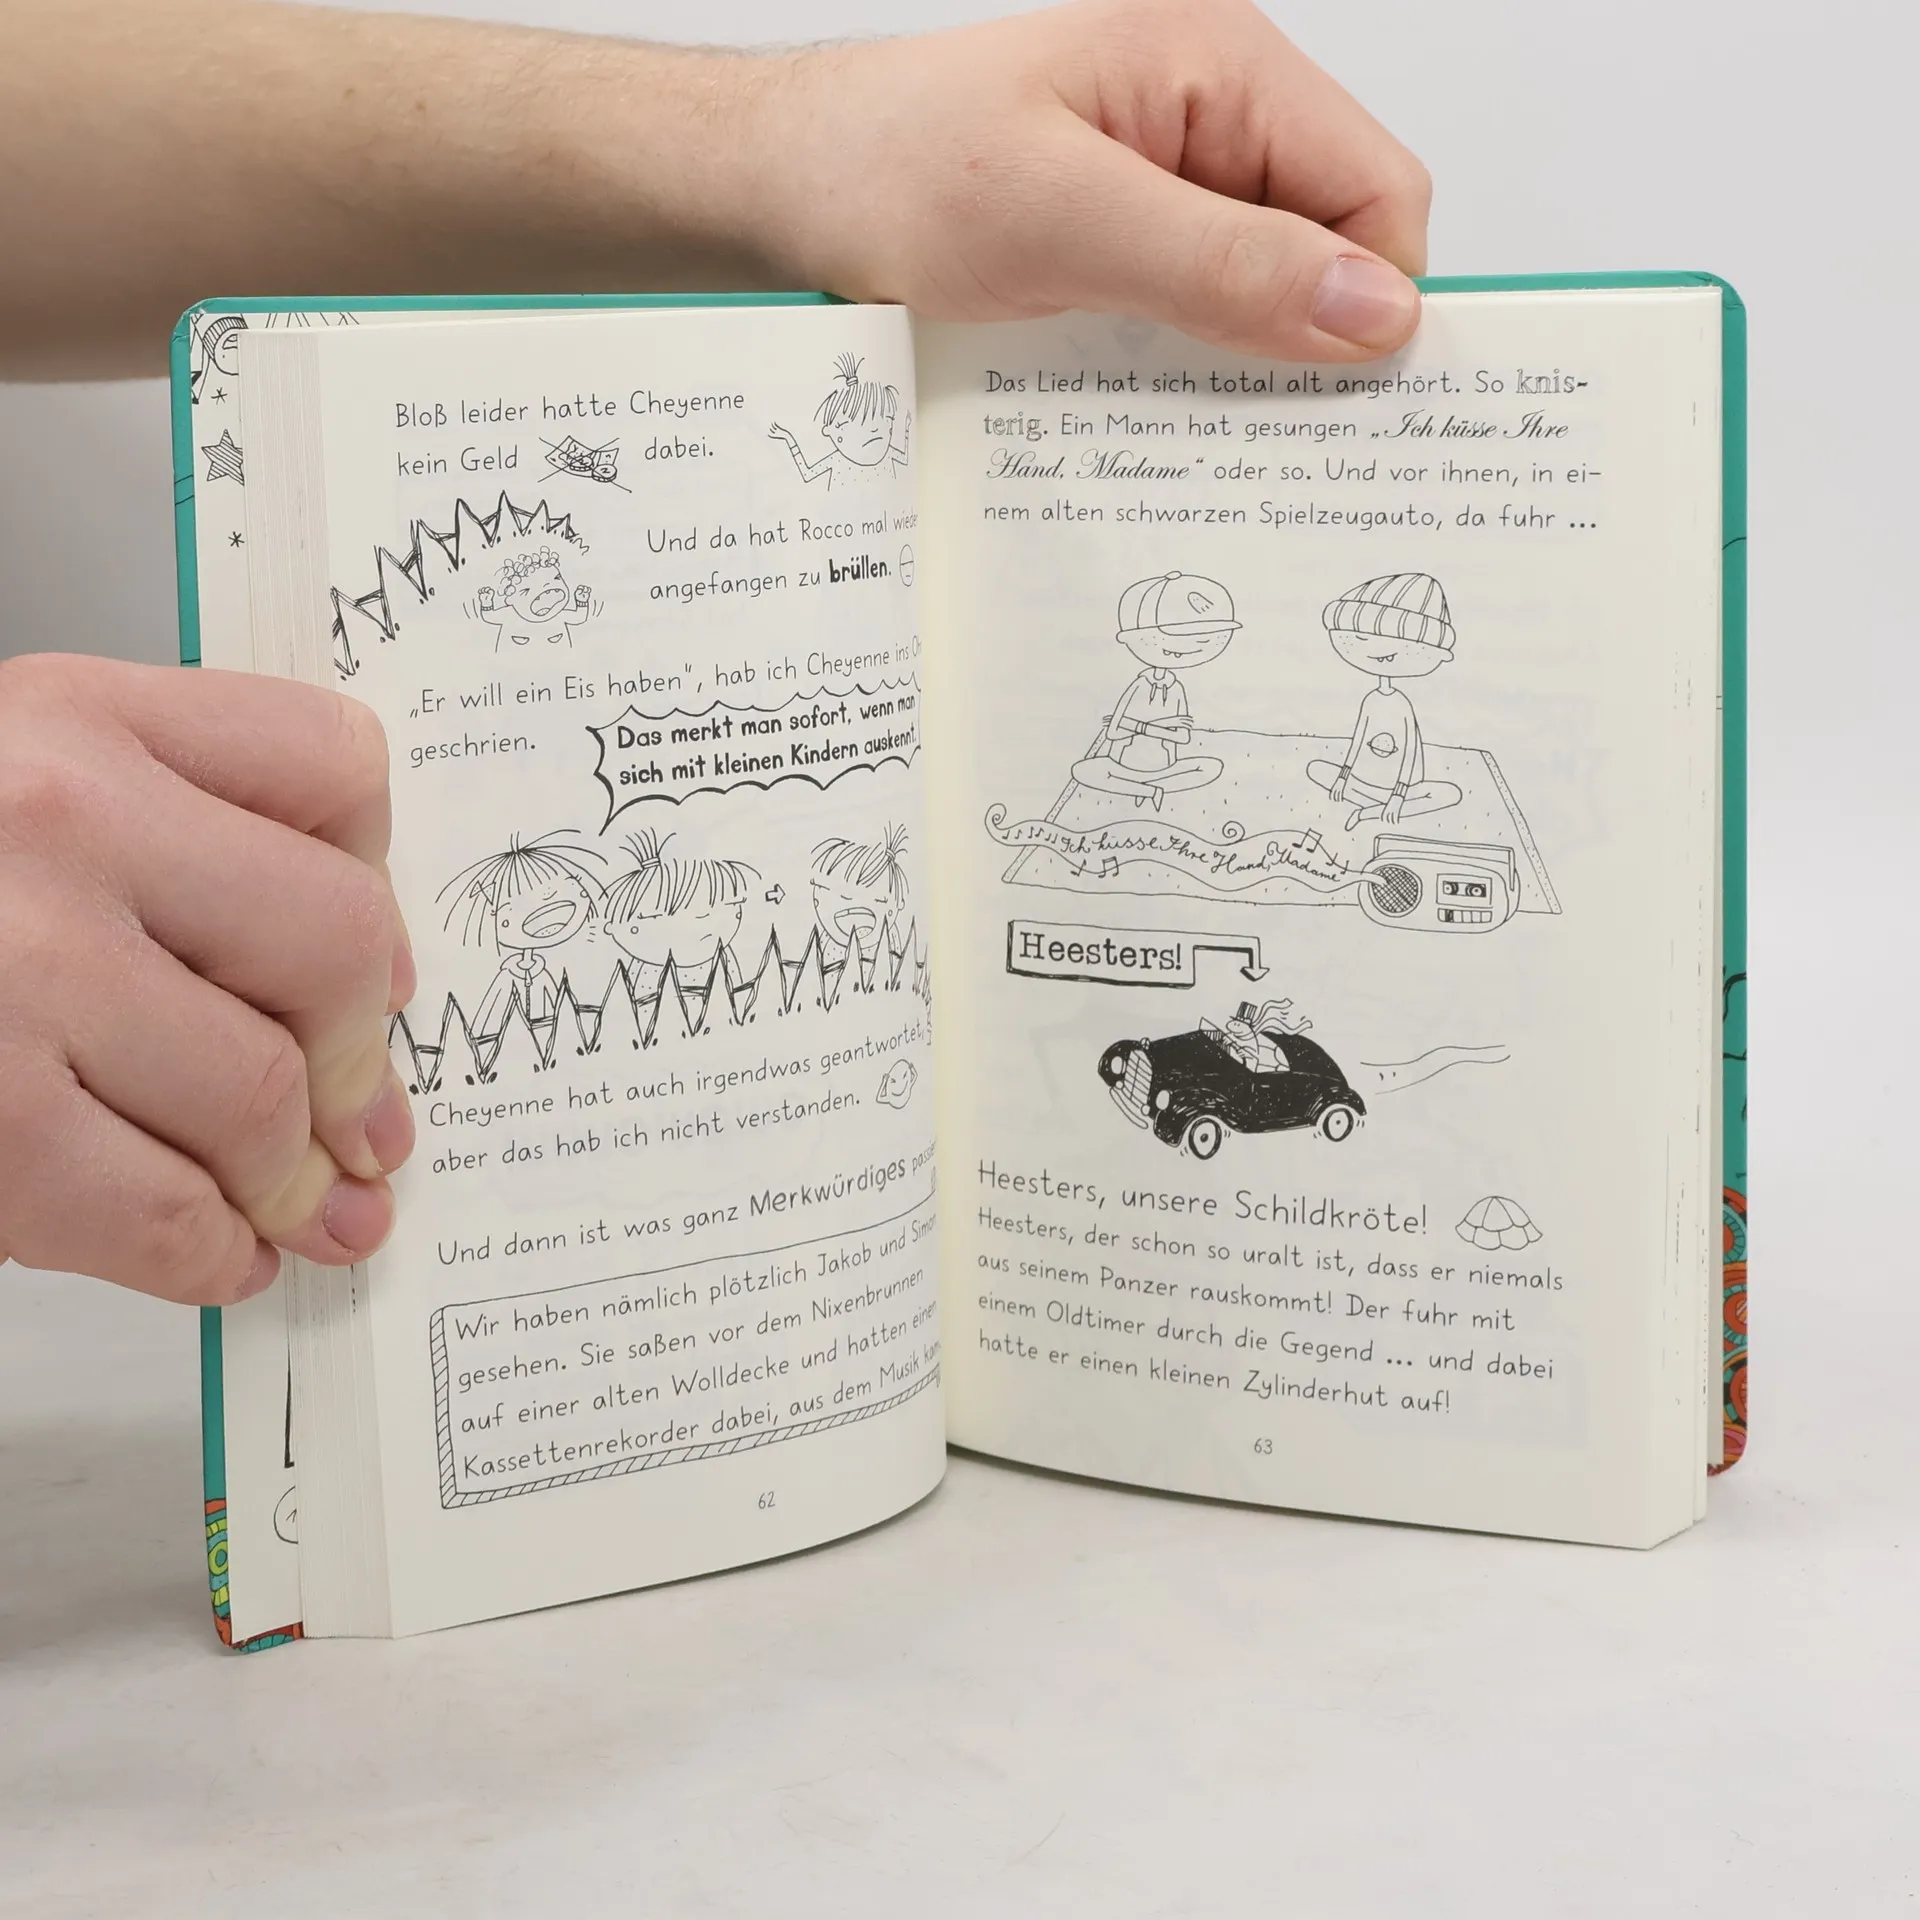 Bloß leider hatte Cheyenne
kein Geld dabei.
Und da hat Rocco mal
angefangen zu brüllen.
„Er will ein Eis haben", hab ich Cheyenne ins
geschrien.
Das merkt man sofort, wenn man
sich mit kleinen Kindern auskennt.
Cheyenne hat auch irgendwas geantwortet,
aber das hab ich nicht verstanden.
Und dann ist was ganz Merkwürdiges
Wir haben nämlich plötzlich Jakob und Simon
gesehen. Sie saßen vor dem Nixenbrunnen
auf einer alten Wolldecke und hatten einen
Kassettenrekorder dabei, aus dem Musik kam.
62
Das Lied hat sich total alt angehört. So knis-
terig. Ein Mann hat gesungen „Ich küsse Ihre
Hand, Madame" oder so. Und vor ihnen, in ei-
nem alten schwarzen Spielzeugauto, da fuhr ...
Ich küsse Ihre Hand, Madame
Heesters!
Heesters, unsere Schildkröte!
Heesters, der schon so uralt ist, dass er niemals
aus seinem Panzer rauskommt! Der fuhr mit
einem Oldtimer durch die Gegend ... und dabei
hatte er einen kleinen Zylinderhut auf!
63